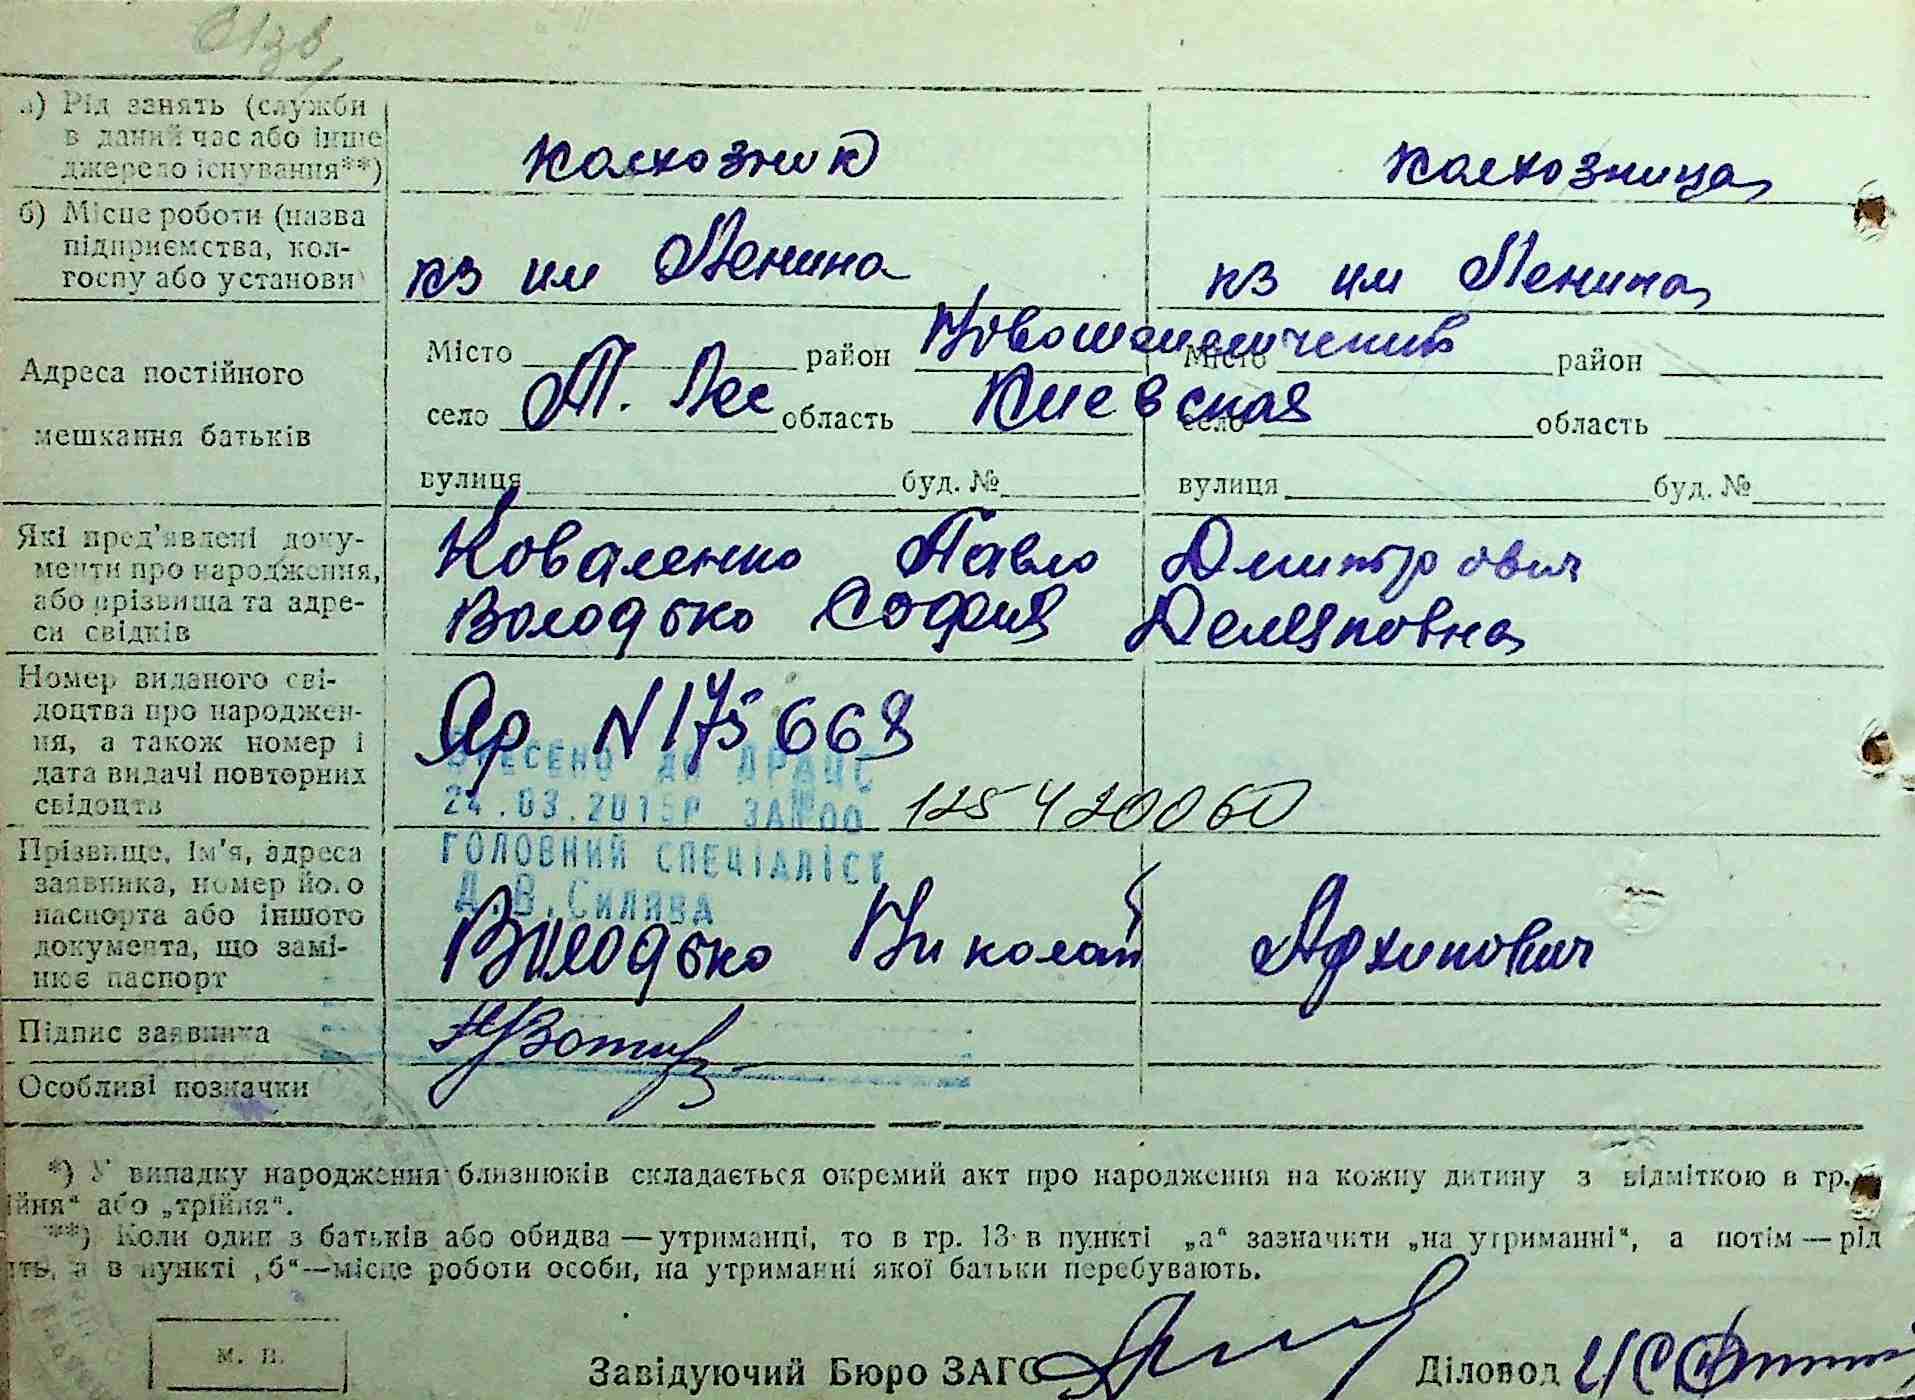 а) Рід занять (служби в даний час або інше джерело існування**)
колхозник колхозница
б) Місце роботи (назва підприємства, колгоспу або установи)
кз им Ленина кз им Ленина
Адреса постійного мешкання батьків
Місто район Місто район
село Т. Лес область Киевская село область
вулиця буд. № вулиця буд. №
Які пред'явлені документи про народження, або прізвища та адреси свідків
Коваленко Павло Дмитрович
Володько София Демяновна
Номер виданого свідоцтва про народження, а також номер і дата видачі повторних свідоцтв
Яр N 175668
ВНЕСЕНО ДО ДРАЦС
24.03.2015Р ЗА №00 125420060
ГОЛОВНИЙ СПЕЦІАЛІСТ
Д.В.СИЛЯВА
Прізвище, ім'я, адреса заявника, номер його паспорта або іншого документа, що замінює паспорт
Володько Николай Архипович
Підпис заявника
Особливі позначки
*) У випадку народження близнюків складається окремий акт про народження на кожну дитину з відміткою в гр.
ійня“ або „трійня“.
**) Коли один з батьків або обидва — утриманці, то в гр. 13 в пункті „а“ зазначити „на утриманні“, а потім — рід
ять, а в пункті „б“ — місце роботи особи, на утриманні якої батьки перебувають.
м. п.
Завідуючий Бюро ЗАГС Діловод